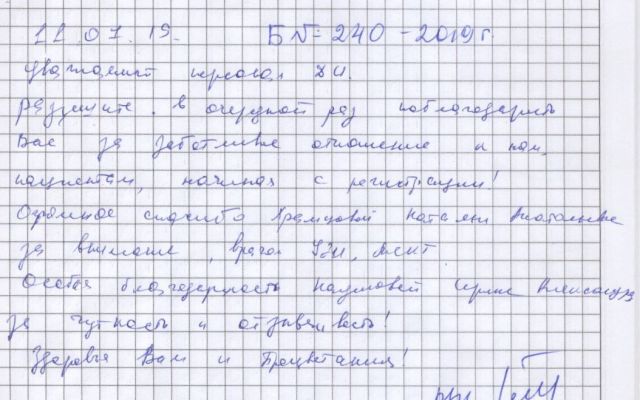 11.07.19. Б№ 240 - 2019 г.
Уважаемый персонал ДИ.
разрешите в очередной раз поблагодарить
Вас за заботливое отношение к нам,
пациентам, начиная с регистрации!
Огромное спасибо Храмцовой Наталии Анатольевне
за внимание, врачам УЗИ, МСКТ.
Особая благодарность Наумовой Ирине
за чуткость и отзывчивость!
Здоровья Вам и Процветания!